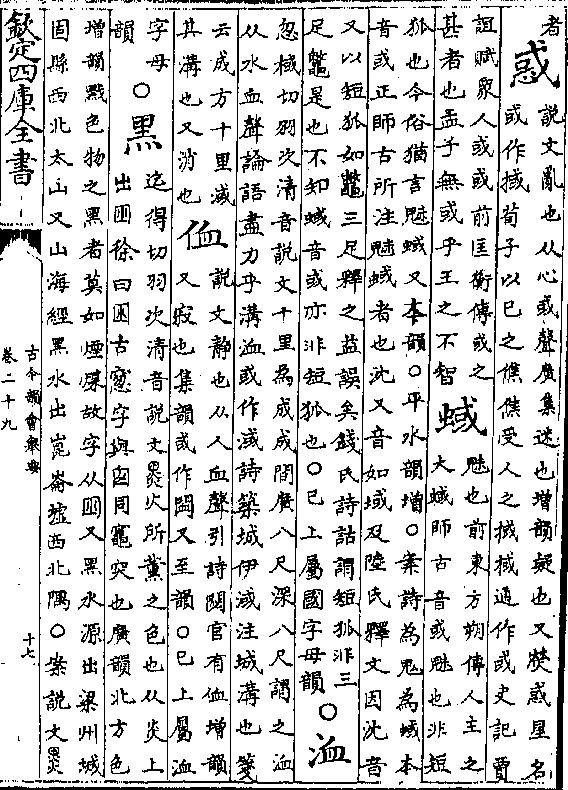 者
惑
說文亂也从心或聲廣集迷也增韻疑也又熒惑星名
或作掝荀子以已之僬僬受人之掝掝通作或史記賈
誼賦衆人或或前匡衡傳或之
甚者也孟子無或乎王之不智
蜮
魅也前東方朔傳人主之
大蜮師古音或魅也非短
狐也今俗猶言魅蜮又本韻○平水韻增○案詩為鬼為蜮本
音或正師古所注魅蜮者也沈又音如域及陸氏釋文因沈音
又以短狐如鼈三足釋之益誤矣錢氏詩詁謂短狐非三
足鼈是也不知蜮音或亦非短狐也○已上屬國字母韻
○洫
忽棫切羽次清音說文十里為成成間廣八尺深八尺謂之洫
从水血聲論語盡力乎溝洫或作淢詩築城伊淢注城溝也箋
云成方十里淢
其溝也又消也
侐
說文靜也从人血聲引詩閟宫有侐增韻
又寂也集韻或作閾又至韻○已上屬洫
字母
韻
○黑
迄得切羽次清音說文黑火所薰之色也从炎上
出囱徐曰囱古窻字與囪同竈突也廣韻北方色
增韻色物之黑者莫如煙煤故字从囱又黑水源出梁州城
固縣西北太山又山海經黑水出崑崙墟西北隅○案說文
欽定四庫全書
古今韻會舉要
卷二十九
十七